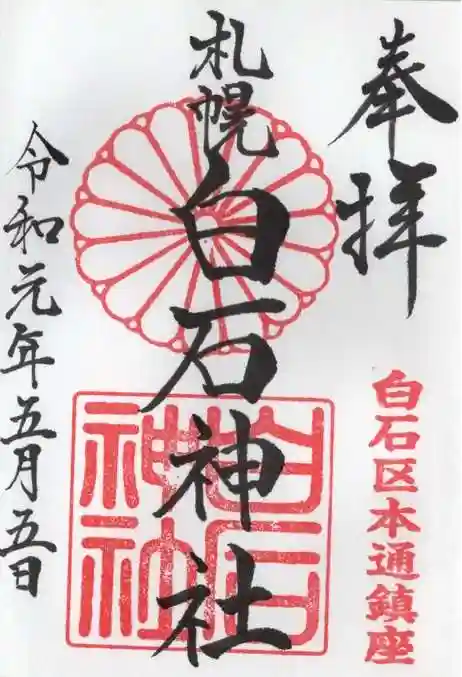 奉拝
白石区本通鎮座
札幌
白石神社
白石
神社
令和元年五月五日